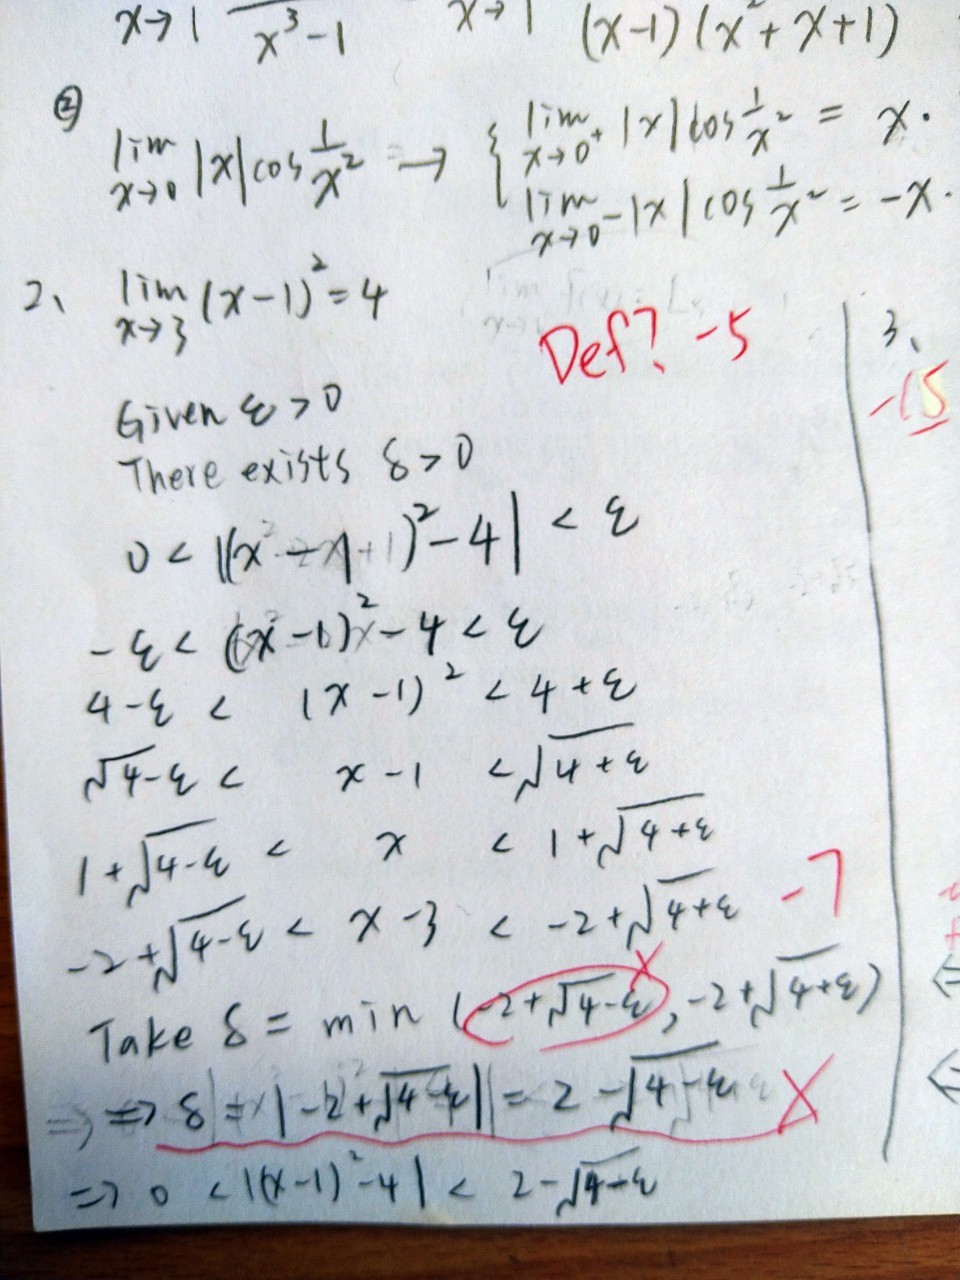 x→1 x³-1 x→1 (x-1)(x²+x+1)
② lim x→0 |x|cos 1/x² → { lim x→0⁺ |x|cos 1/x² = x.
lim x→0⁻ -|x|cos 1/x² = -x.
2、 lim x→3 (x-1)² = 4
Def? -5
Given ε > 0
There exists δ > 0
0 < |(x-1)²-4| < ε
-ε < (x-1)²-4 < ε
4-ε < (x-1)² < 4+ε
√4-ε < x-1 < √4+ε
1+√4-ε < x < 1+√4+ε
-2+√4-ε < x-3 < -2+√4+ε -7
Take δ = min (-2+√4-ε, -2+√4+ε) X
⇒ δ = |-2+√4-ε| = 2-√4-ε X
⇒ 0 < |(x-1)²-4| < 2-√4-ε
3、
-15